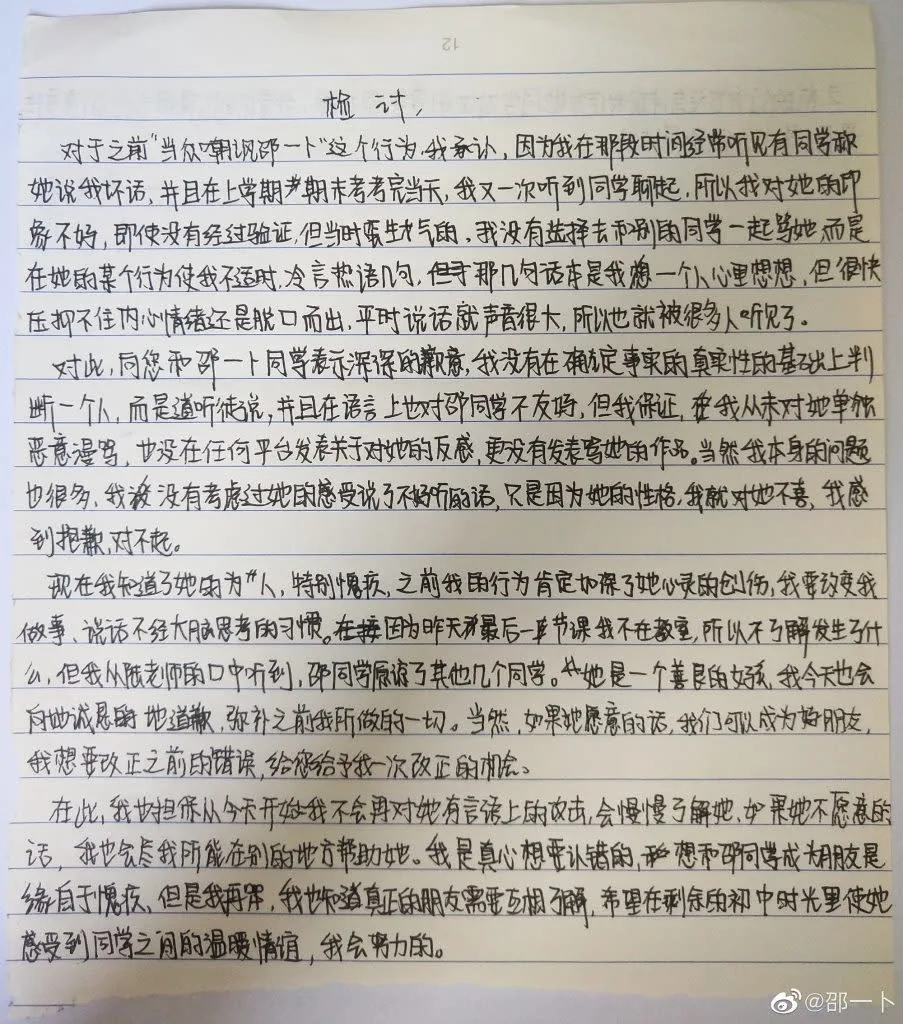 12
检讨,
对于之前“当众嘲讽邵一卜”这个行为,我承认,因为我在那段时间经常听见有同学称
她说我坏话,并且在上学期期末考考完当天,我又一次听到同学聊起,所以我对她的印
象不好,即使没有经过验证,但当时蛮生气的,我没有选择去和别的同学一起骂她,而是
在她的某个行为使我不适时,冷言热语几句,那几句话本是我想一个人心里想想,但很快
压抑不住内心情绪还是脱口而出,平时说话就声音很大,所以也就被很多人听见了。
对此,向您和邵一卜同学表示深深的歉意,我没有在确定事实的真实性的基础上判
断一个人,而是道听徒说,并且在语言上也对邵同学不友好,但我保证,我从未对她单独
恶意谩骂,也没在任何平台发表关于对她的反感,更没有发表骂她的作品。当然我本身的问题
也很多,我没有考虑过她的感受说了不好听的话,只是因为她的性格,我就对她不喜,我感
到抱歉,对不起。
现在我知道了她的为人,特别愧疚,之前我的行为肯定加深了她心灵的创伤,我要改变我
做事、说话不经大脑思考的习惯。因为昨天最后一节课我不在教室,所以不了解发生了什
么,但我从陈老师的口中听到,邵同学原谅了其他几个同学。她是一个善良的女孩,我今天也会
向她诚恳的地道歉,弥补之前我所做的一切。当然,如果她愿意的话,我们可以成为好朋友,
我想要改正之前的错误,给您给予我一次改正的机会。
在此,我也担保从今天开始我不会再对她有言语上的攻击,会慢慢了解她,如果她不愿意的
话,我也会尽我所能在别的地方帮助她。我是真心想要认错的,想和邵同学成为朋友是
缘自于愧疚,但是我,我也知道真正的朋友需要互相了解,希望在剩余的初中时光里使她
感受到同学之间的温暖情谊,我会努力的。
@邵一卜